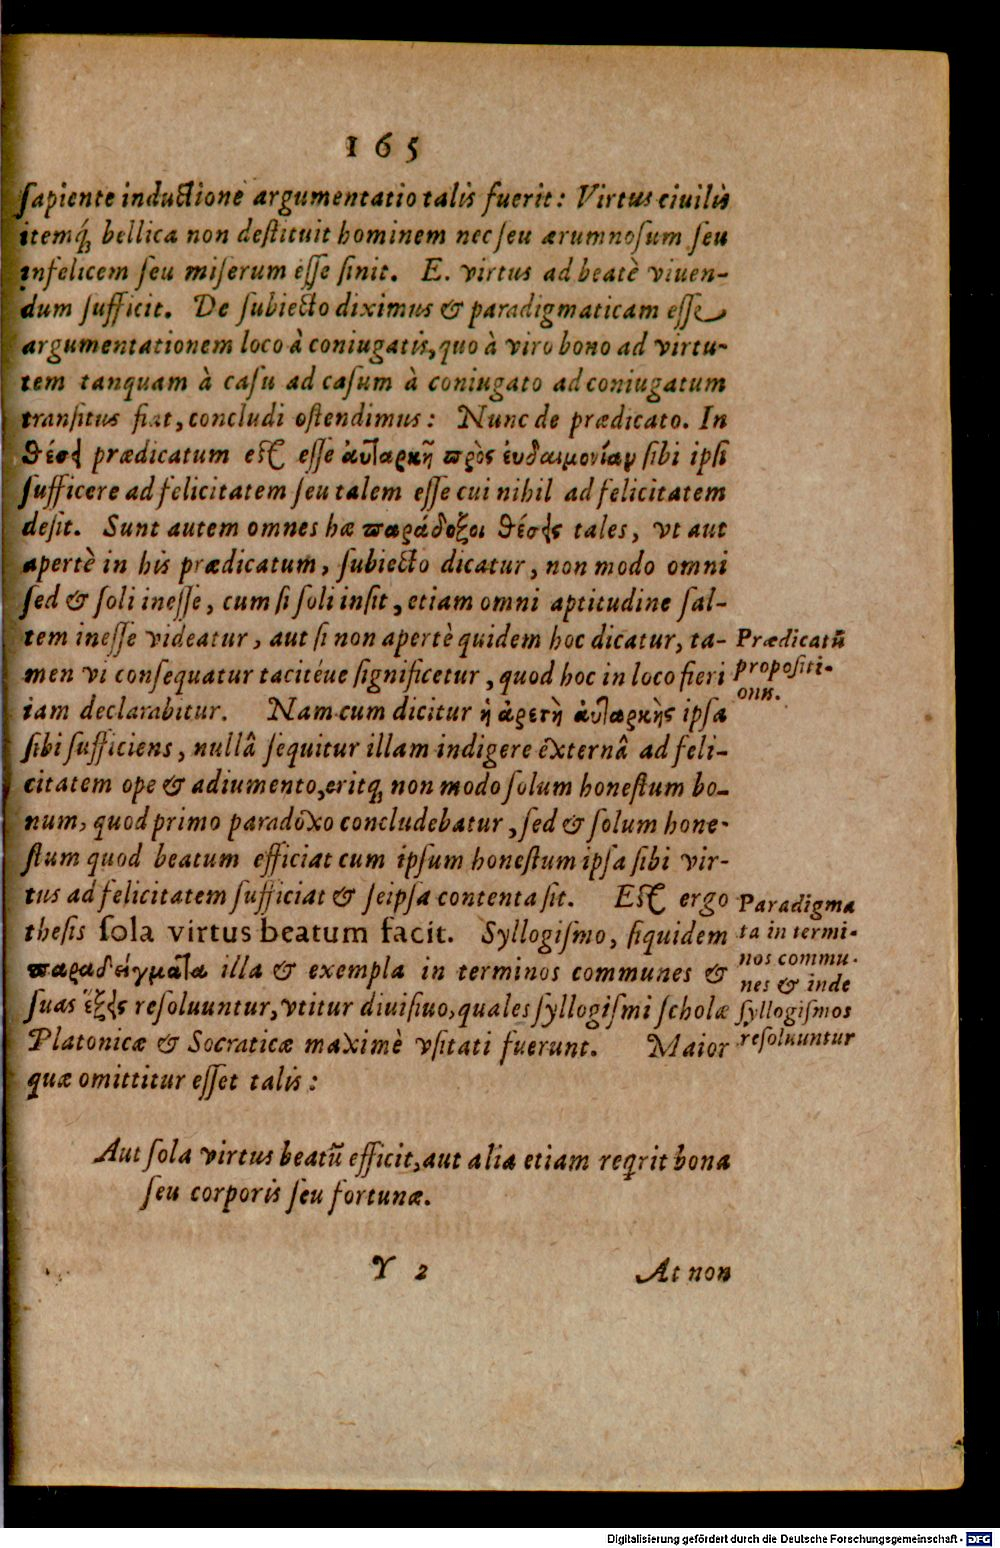 165
ſapiente inductione argumentatio talis fuerit: Virtus ciuilis
itemq́ꝫ bellica non deſtituit hominem nec ſeu ærumnoſum ſeu
infelicem ſeu miſerum eſſe ſinit. E. virtus ad beatè viuen-
dum ſufficit. De ſubiecto diximus & paradigmaticam eſſe
argumentationem loco à coniugatis, quo à viro bono ad virtu-
tem tanquam à caſu ad caſum à coniugato ad coniugatum
tranſitus fiat, concludi oſtendimus: Nunc de prædicato. In
θέσει prædicatum eſt eſſe ἀυταρκῆ πρὸς ἐυδαιμονίαν ſibi ipſi
ſufficere ad felicitatem ſeu talem eſſe cui nihil ad felicitatem
deſit. Sunt autem omnes hæ παράδοξοι θέσεις tales, vt aut
apertè in his prædicatum, ſubiecto dicatur, non modo omni
ſed & ſoli ineſſe, cum ſi ſoli inſit, etiam omni aptitudine ſal-
tem ineſſe videatur, aut ſi non apertè quidem hoc dicatur, ta-
men vi conſequatur tacitéue ſignificetur, quod hoc in loco fieri
iam declarabitur. Nam cum dicitur ἡ ἀρετὴ ἀυταρκὴς ipſa
ſibi ſufficiens, nullâ ſequitur illam indigere externâ ad feli-
citatem ope & adiumento, eritqꝫ non modo ſolum honeſtum bo-
num, quod primo paradoxo concludebatur, ſed & ſolum hone-
ſtum quod beatum efficiat cum ipſum honeſtum ipſa ſibi vir-
tus ad felicitatem ſufficiat & ſeipſa contenta ſit. Eſt ergo
theſis ſola virtus beatum facit. Syllogiſmo, ſiquidem
παραδείγματα illa & exempla in terminos communes &
ſuas ἕξεις reſoluuntur, vtitur diuiſiuo, quales ſyllogiſmi ſcholæ
Platonicæ & Socraticæ maximè vſitati fuerunt. Maior
quæ omittitur eſſet talis:
Prædicatū
propoſiti-
onis.
Paradigma
ta in termi-
nos commu-
nes & inde
ſyllogiſmos
reſoluuntur
Aut ſola virtus beatū efficit, aut alia etiam reqrit bona
ſeu corporis ſeu fortunæ.
Y 2
At non
Digitalisierung gefördert durch die Deutsche Forschungsgemeinschaft - DFG